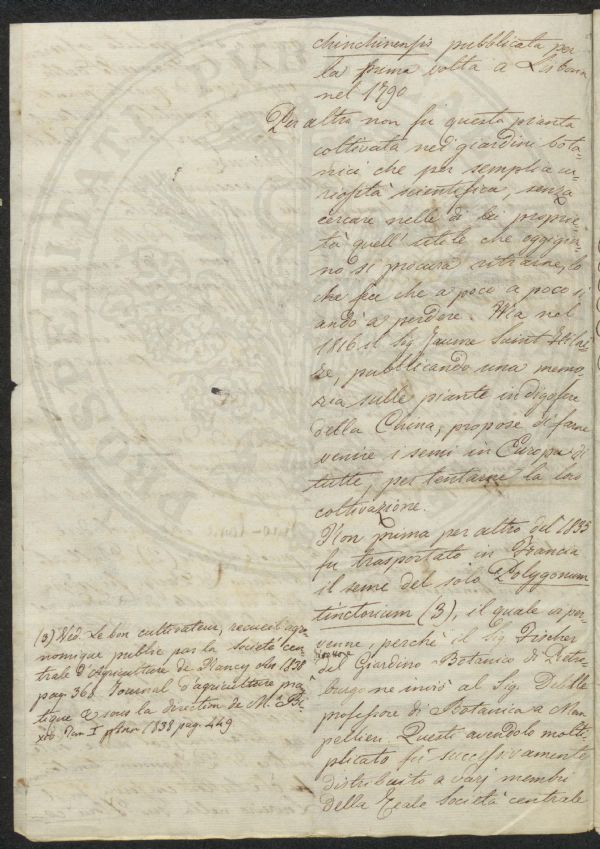 chinchinensis pubblicata per
la prima volta a Lisbona
nel 1790
Per altro non fu questa pianta
coltivata nei giardini bota-
nici che per semplice cu-
riosità scientifica, senza
cercare nelle di lei proprie-
tà quell'utile che oggigior-
no si procura ritrarne, lo
che fece che a poco a poco si
andò a perdere. Ma nel
1816 il Sig. Jaume Saint Hilai-
re, pubblicando una memo-
ria sulle piante indigofere
della China, propose di fare
venire i semi in Europa di
tutte, per tentarne la loro
coltivazione.
Non prima per altro del 1835
fu trasportato in Francia
il seme del solo Polygonum
tinctorium (3), il quale vi per-
venne, perchè il Sig. Fischer
del Giardino Botanico di Pietro-
burgo ne inviò al Sig. Delille
professore di Botanica a Mon-
pellier. Questi avendolo molti-
plicato fù successivamente
distribuito a varj membri
della Reale Società centrale
(3) Ved. Le bon cultivateur, recueil agro-
nomique publié par la Société cen-
trale d'Agriculture de Nancy 1838
pag. 368. Journal d'agriculture pra-
tique & sous la direction de Mr. Bi-
xio. Tom. I 1838 pag. 449
PROSPERITATI